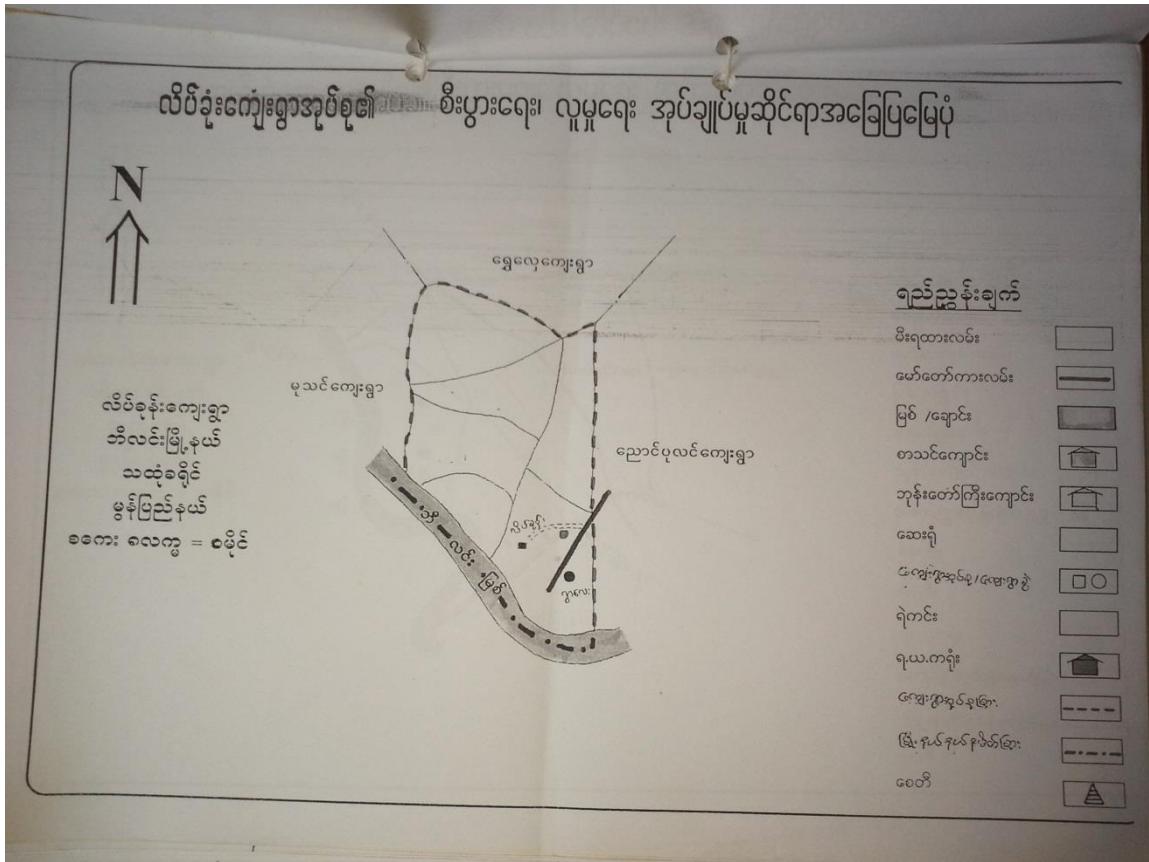 လိပ်ခုံးကျေးရွာအုပ်စု၏ စီးပွားရေး၊ လူမှုရေး အုပ်ချုပ်မှုဆိုင်ရာအခြေပြမြေပုံ
N
ရွှေလှေကျေးရွာ
မုသင်ကျေးရွာ
ညောင်ပုလင်ကျေးရွာ
လိပ်ခုန်းကျေးရွာ
ဘီလင်းမြို့နယ်
သထုံခရိုင်
မွန်ပြည်နယ်
၁ မိုင်
ဘီလင်းမြစ်
ရွာလေး
ရည်ညွှန်းချက်
မီးရထားလမ်း
မော်တော်ကားလမ်း
မြစ် /ချောင်း
စာသင်ကျောင်း
ဘုန်းတော်ကြီးကျောင်း
ဆေးရုံ
ကျေးရွာအုပ်စု/ကျေးရွာခွဲ
ရဲကင်း
ရ.ယ.ကရုံး
ကျေးရွာအုပ်စုခြား
မြို့နယ်နယ်နမိတ်ခြား
စေတီ